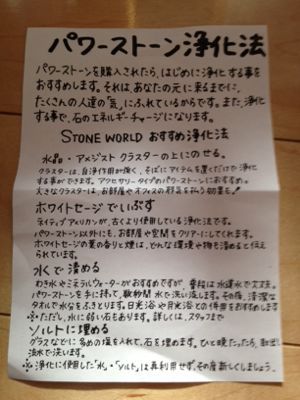 パワーストーン浄化法
パワーストーンを購入されたら、はじめに浄化する事を
おすすめします。それは、あなたの元に来るまでに、
たくさんの人達の「気」にふれているからです。また、浄化
する事で、石のエネルギーチャージになります。
STONE WORLD おすすめ浄化法
水晶・アメジスト クラスターの上にのせる。
クラスターは、自浄作用が強く、そばにアイテムを置くだけで浄化
する事ができます。アクセサリータイプのパワーストーンにおすすめ。
大きなクラスターは、お部屋やオフィスの邪気を払う効果も!
ホワイトセージでいぶす
ネイティブアメリカンが、古くより使用している浄化法です。
パワーストーン以外にも、お部屋や空間をクリアーにしてくれます。
ホワイトセージの葉の香りと煙は、どんな環境や物も清めると伝え
られています。
水で清める
わき水やミネラルウォーターがおすすめですが、普段は水道水で大丈夫。
パワーストーンを手に持って、数秒間水で洗い流します。その後、清潔な
タオルで水分をふきとります。日光浴や月光浴との併用をおすすめします
※ただし、水に弱い石もあります。詳しくは、スタッフまで
ソルトに埋める
グラスなどに多めの塩を入れて、石を埋めます。ひと晩たったら、取出し
流水で洗います。
※浄化に使用した「水」・「ソルト」は再利用せず、その度新しくしましょう。